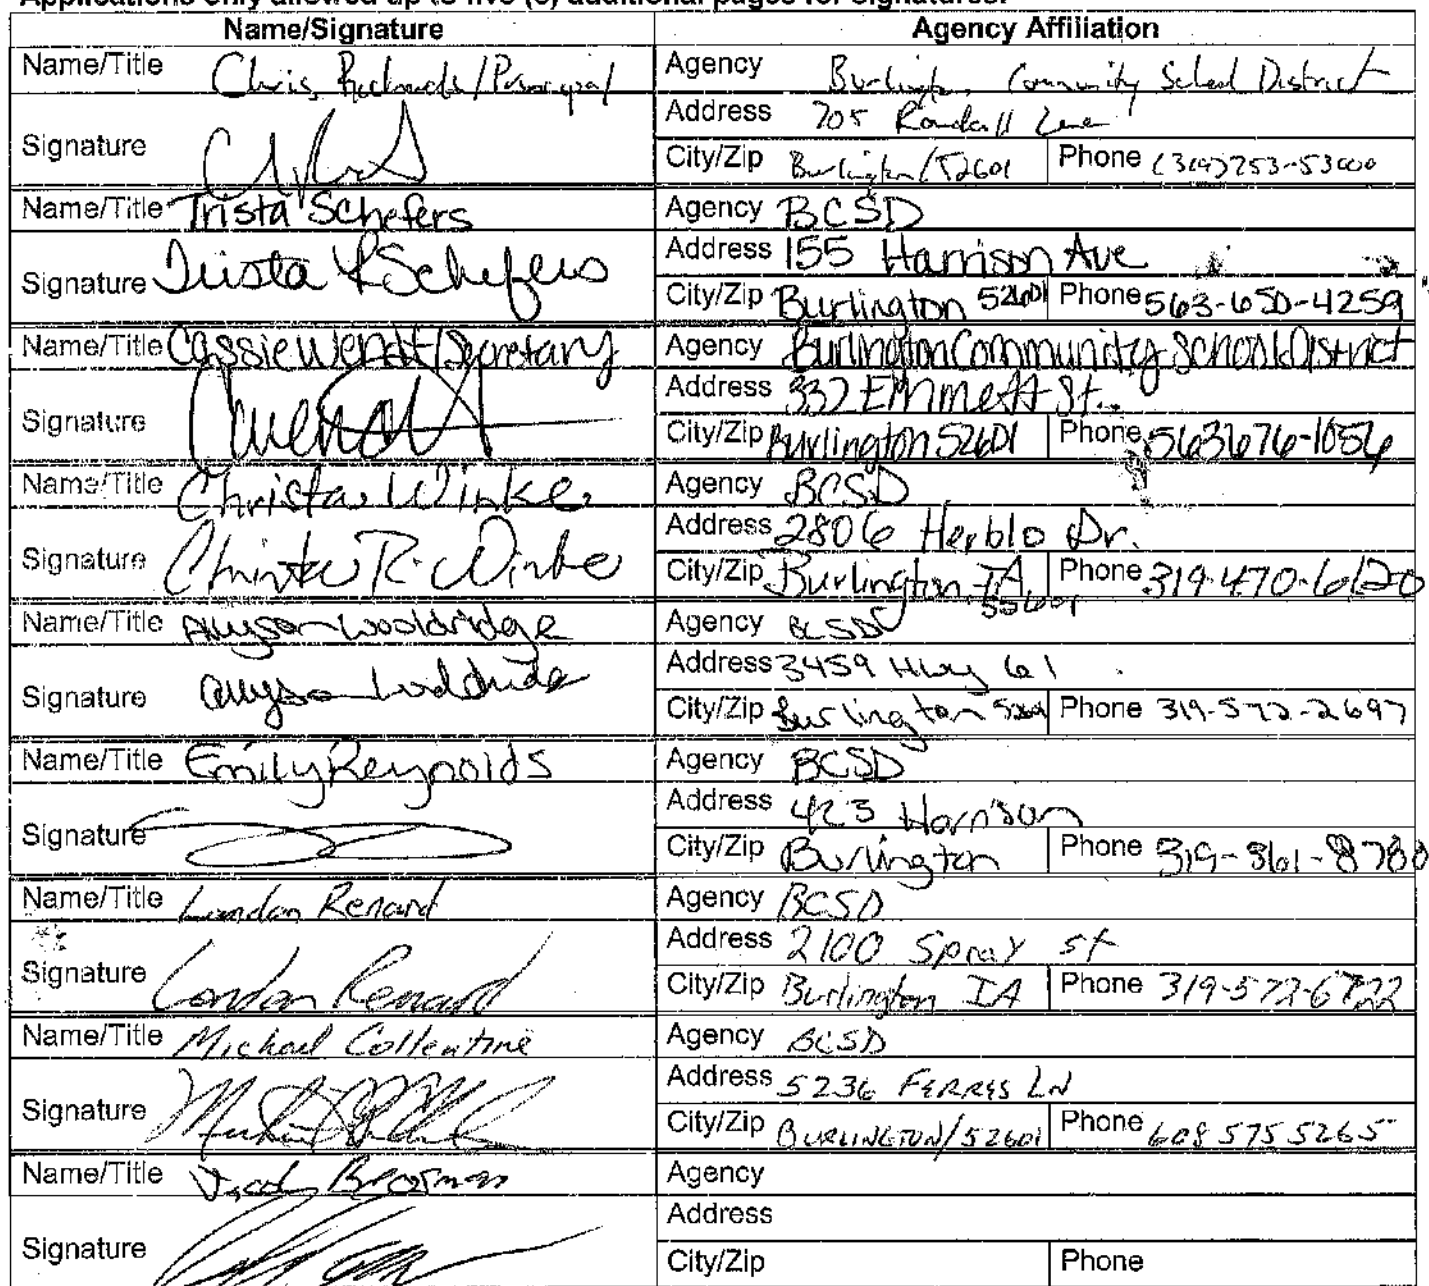 Applications only allowed up to five (5) additional pages for signatures.
Name/Signature Agency Affiliation
Name/Title Chris /Principal Agency Burlington Community School District
Signature Address 705 Randall Lane
City/Zip Burlington/52601 Phone
Name/Title Trista Schefers Agency BCSD
Signature Trista Schefers Address 155 Harrison Ave
City/Zip Burlington 52601 Phone 563-650-4259
Name/Title Cassie Wendt/Secretary Agency Burlington Community School District
Signature Address 332 Emmett St.
City/Zip Burlington 52601 Phone 563 676-1056
Name/Title Christa Winke Agency BCSD
Signature Christa R. Winke Address 2806 Herblo Dr.
City/Zip Burlington IA 52601 Phone 319-470-6120
Name/Title Allyson Wooldridge Agency BCSD
Signature Allyson Wooldridge Address 3459 Hwy 61
City/Zip Burlington 52601 Phone 319-572-2697
Name/Title Emily Reynolds Agency BCSD
Signature Address 423 Harrison
City/Zip Burlington Phone 319-861-8788
Name/Title Landon Renard Agency BCSD
Signature Landon Renard Address 2100 Spray St
City/Zip Burlington IA Phone 319-572-6722
Name/Title Michael Collentine Agency BCSD
Signature Address 5236 FERRIS LN
City/Zip BURLINGTON/52601 Phone 608 575 5265
Name/Title Jacob Agency
Signature Address
City/Zip Phone